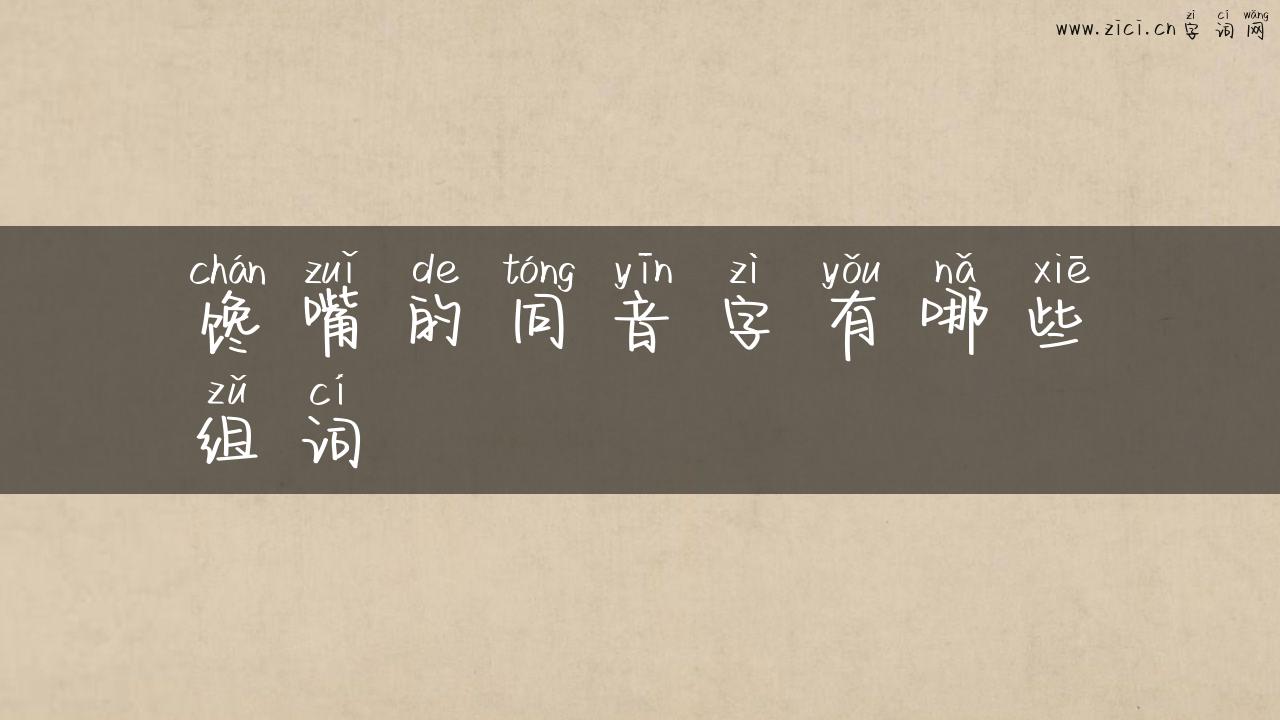 zì cí wǎng
www.zici.cn 字词网
chán zuǐ de tóng yīn zì yǒu nǎ xiē
馋嘴的同音字有哪些
zǔ cí
组词